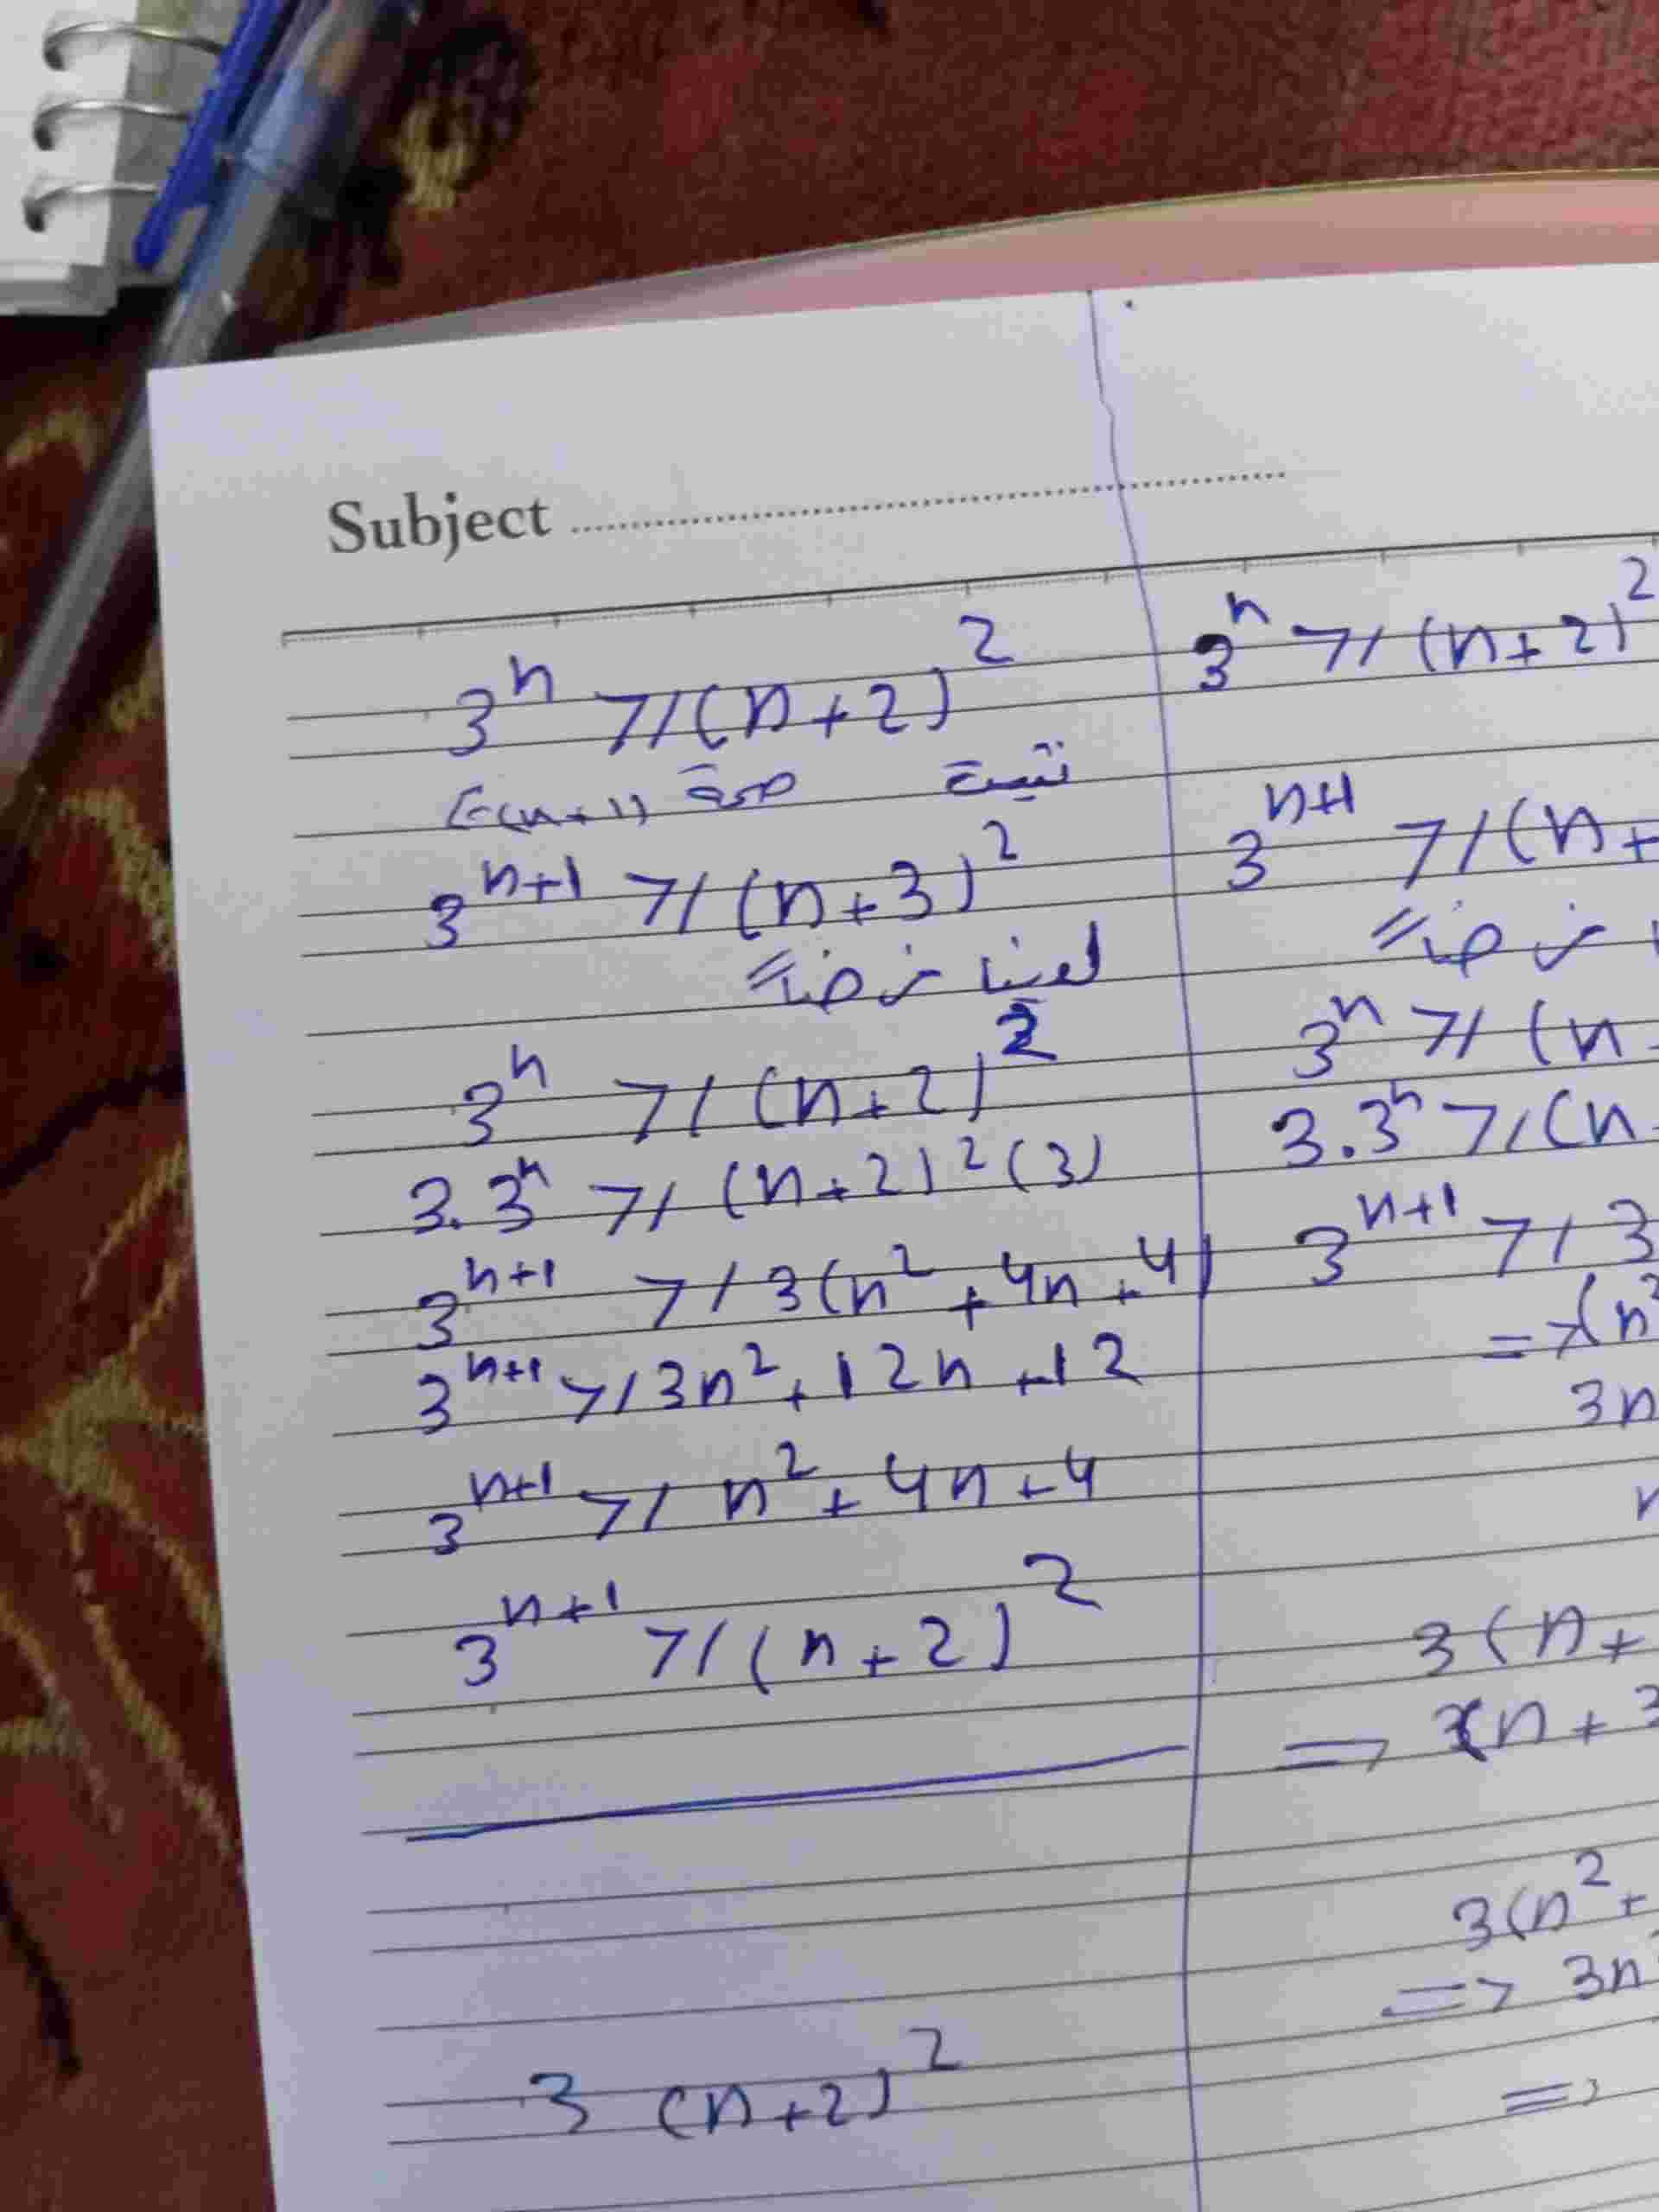 Subject
3ⁿ ⩾ (n+2)²
نثبت صحة E(n+1)
3ⁿ⁺¹ ⩾ (n+3)²
لدينا فرضاً
3ⁿ ⩾ (n+2)²
3.3ⁿ ⩾ (n+2)²(3)
3ⁿ⁺¹ ⩾ 3(n²+4n+4)
3ⁿ⁺¹ ⩾ 3n²+12n+12
3ⁿ⁺¹ ⩾ n²+4n+4
3ⁿ⁺¹ ⩾ (n+2)²
3 (n+2)²
3ⁿ ⩾ (n+2)²
3ⁿ⁺¹ ⩾ (n+
فرضاً
3ⁿ ⩾ (n
3.3ⁿ ⩾ (n
3ⁿ⁺¹ ⩾ 3
3n
3(n+
3(n²+
=> 3n
=>